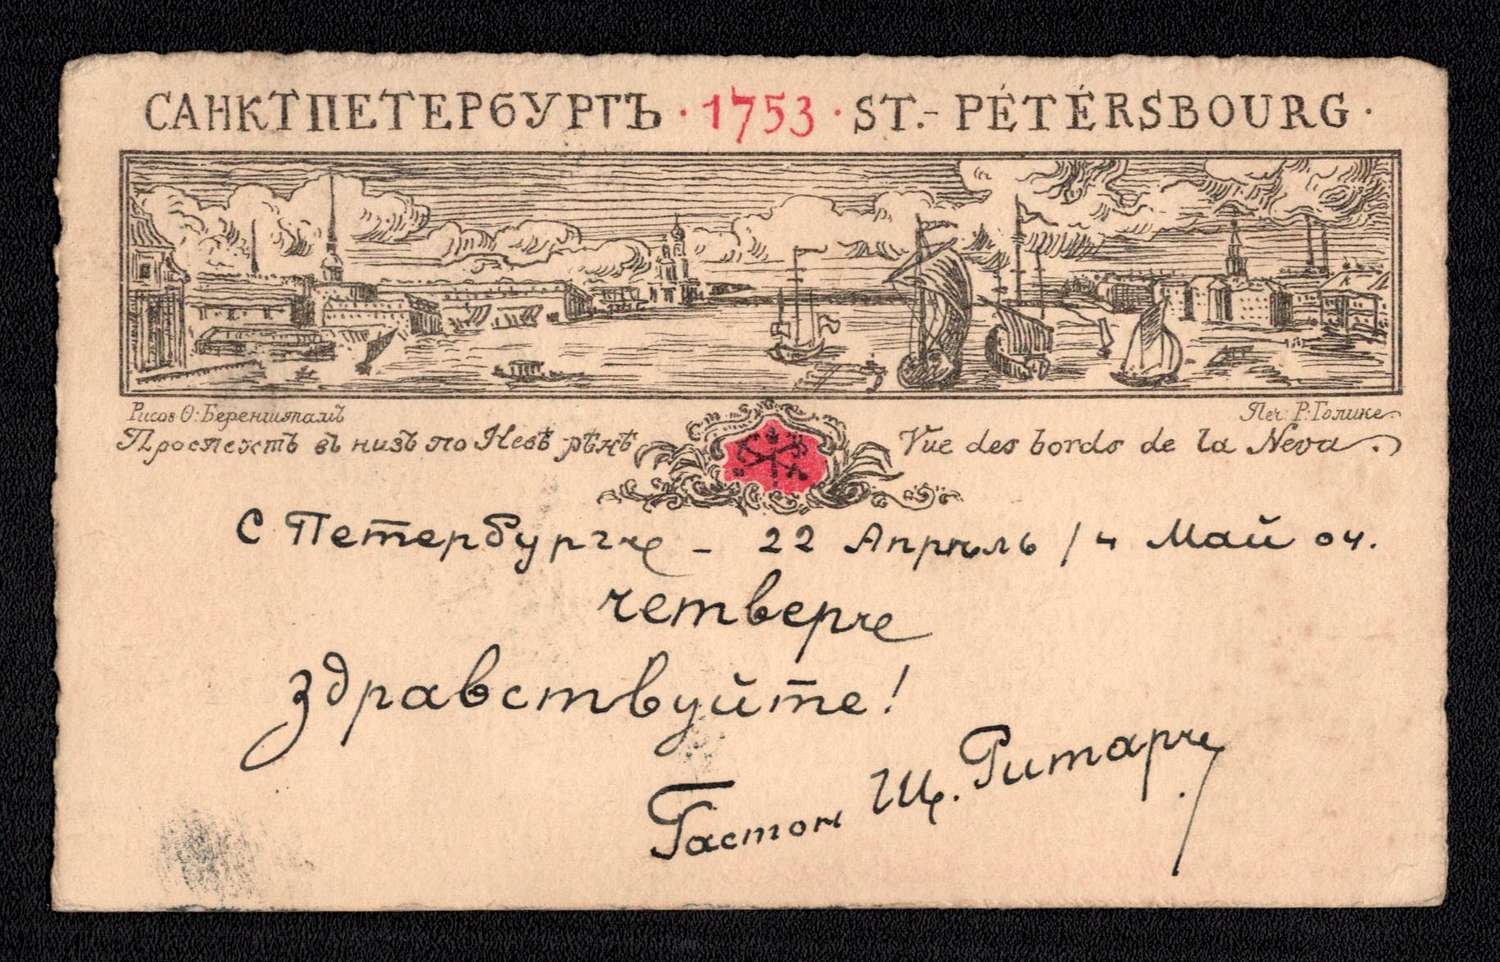 САНКТПЕТЕРБУРГЪ · 1753 · ST.- PÉTÉRSBOURG ·
Рисов Ѳ: Беренштамъ
Печ Р: Голике
Проспектъ въ низъ по Невѣ рѣкѣ
Vue des bords de la Neva
С Петербургче - 22 Апрѣль / 4 Май 04.
четверче
здравствуйте!
Гастон Щ. Ритарче